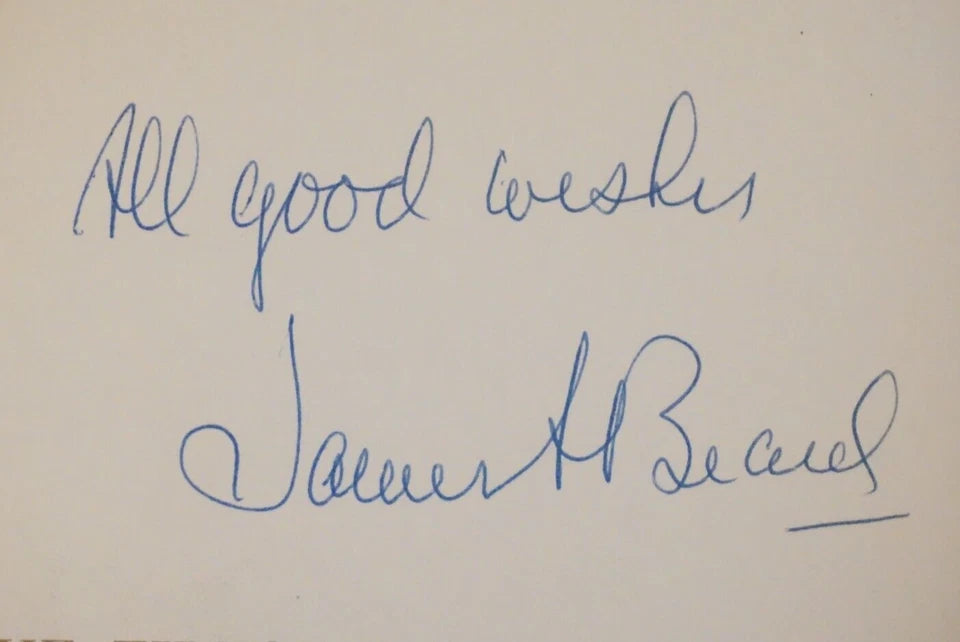 All good wishes
James A Beard